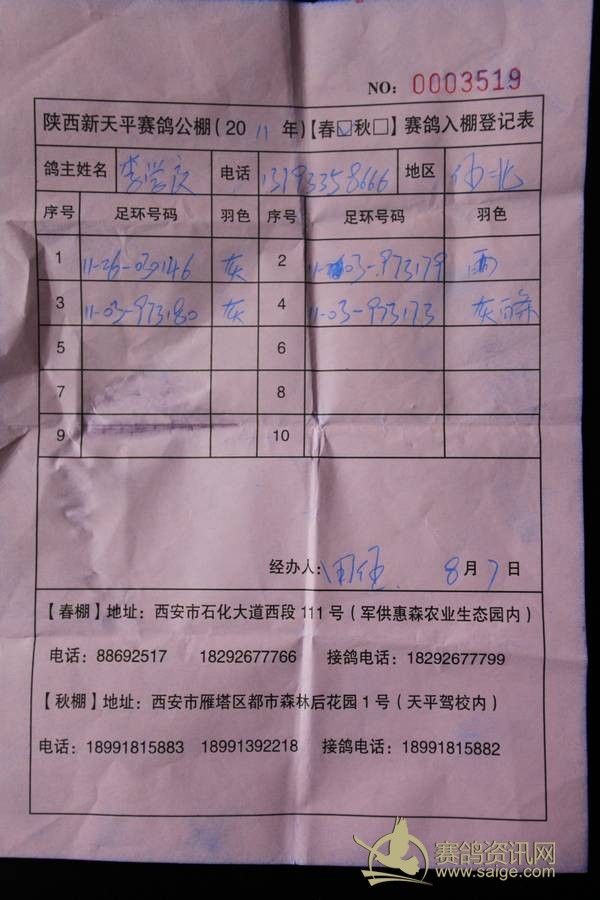 NO: 0003519
陕西新天平赛鸽公棚(2011年)【春☑秋□】赛鸽入棚登记表
鸽主姓名 李学文 电话 13193358666 地区 河北
序号 足环号码 羽色 序号 足环号码 羽色
1 11-26-030146 灰 2 11-03-973179 雨
3 11-03-973180 灰 4 11-03-973173 灰
5 6
7 8
9 10
经办人: 8月7日
【春棚】地址：西安市石化大道西段111号（军供惠森农业生态园内）
电话：88692517 18292677766 接鸽电话：18292677799
【秋棚】地址：西安市雁塔区都市森林后花园1号（天平驾校内）
电话：18991815883 18991392218 接鸽电话：18991815882
赛鸽资讯网
www.saige.com